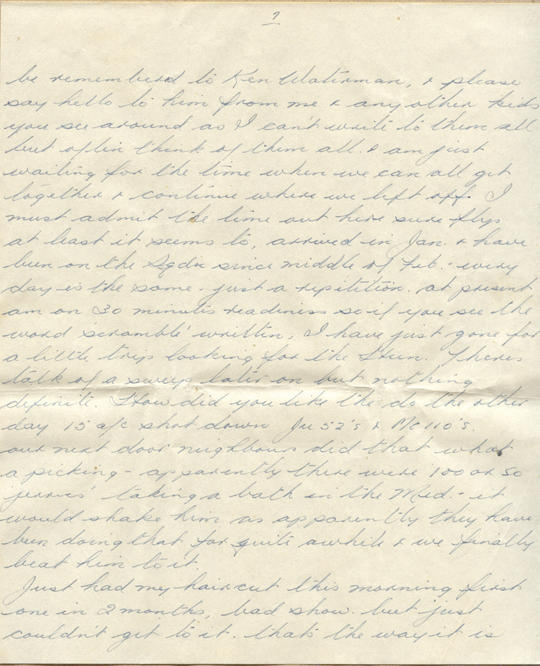 7
be remembered to Ken Waterman, & please
say hello to him from me & any other kids
you see around as I can't write to them all
but often think of them all. & am just
waiting for the time when we can all get
together & continue where we left off. I
must admit the time out here sure flys
at least it seems to, arrived in Jan. & have
been on the Sqdn since middle of Feb. - every
day is the same - just a repitition. at present
am on 30 minutes readiness so if you see the
word scramble' written, I have just gone for
a little trip looking for the Hun. There's
talk of a sweep later on but nothing
definite. How did you like the do the other
day 15 a/c shot down Ju 52's & Me 110's.
our next door neighbours did that what
a picking - apparently there were 100 or so
jerries' taking a bath in the Med. - it
would shake him as apparently they have
been doing that for quite awhile & we finally
beat him to it.
Just had my haircut this morning first
one in 2 months, bad show. but just
couldn't get to it. that's the way it is